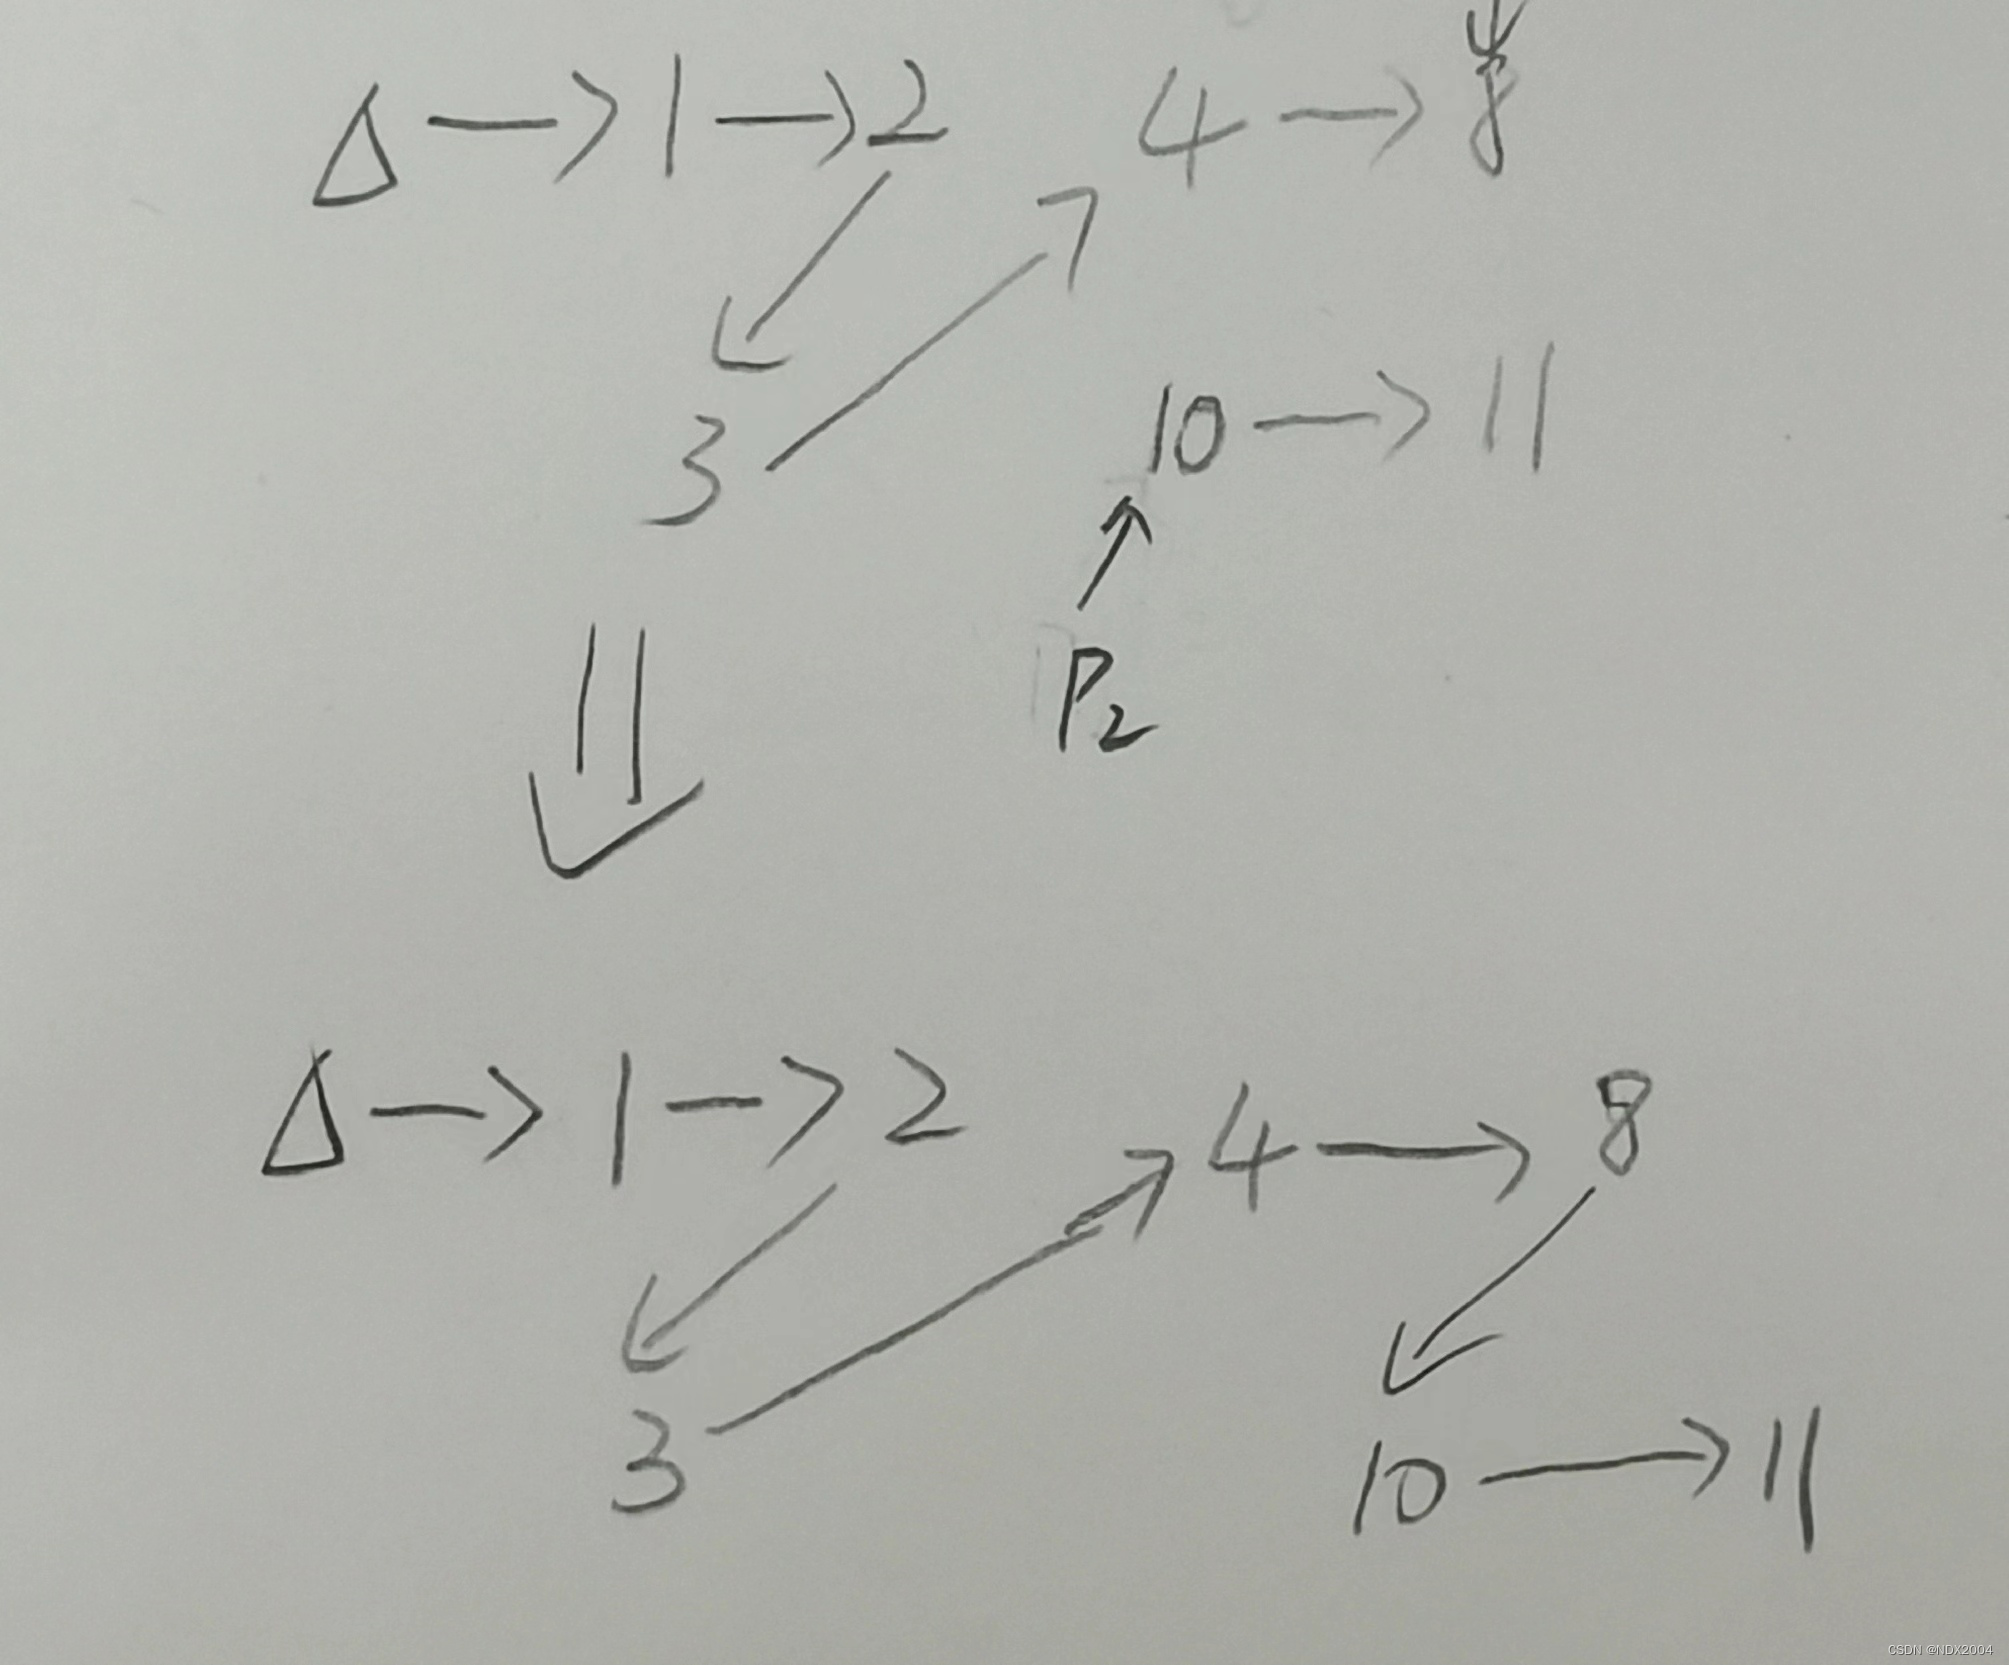 Δ → 1 → 2 4 → 8
3 10 → 11
P2
Δ → 1 → 2 4 → 8
3 10 → 11
CSDN @NDX2004